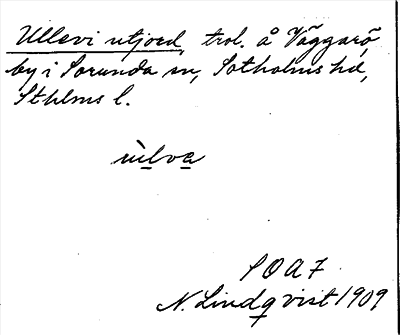 Ullevi utjord, trol. å Väggarö,
by i Sorunda sn, Sotholms hd,
Sthlms l.
ùlva
SOA 7
N. Lindqvist 1909